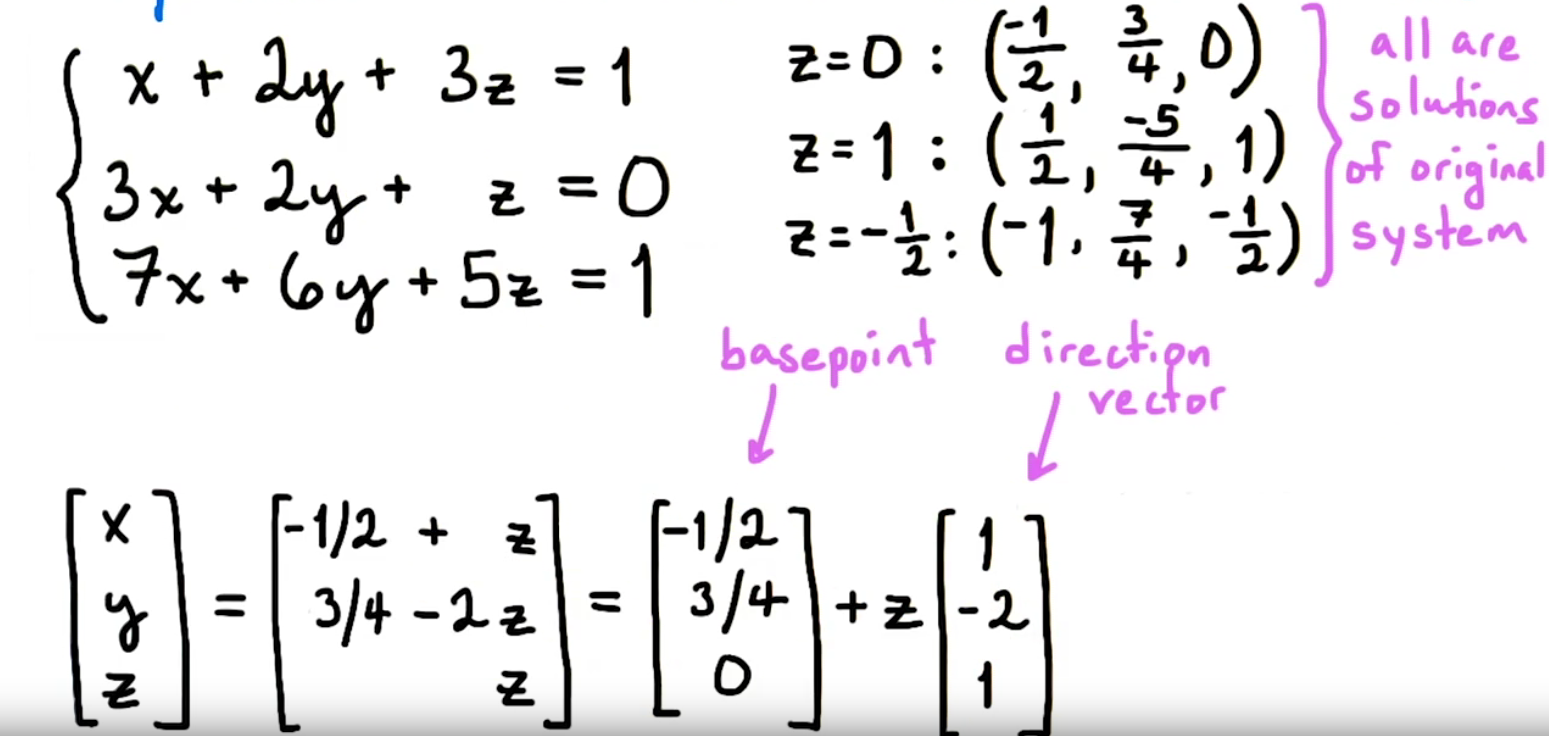 x + 2y + 3z = 1
3x + 2y + z = 0
7x + 6y + 5z = 1
z=0 : (-1/2, 3/4, 0)
z=1 : (1/2, -5/4, 1)
z=-1/2 : (-1, 7/4, -1/2)
all are
solutions
of original
system
basepoint
direction
vector
[x y z] = [-1/2 + z 3/4 - 2z z] = [-1/2 3/4 0] + z [1 -2 1]